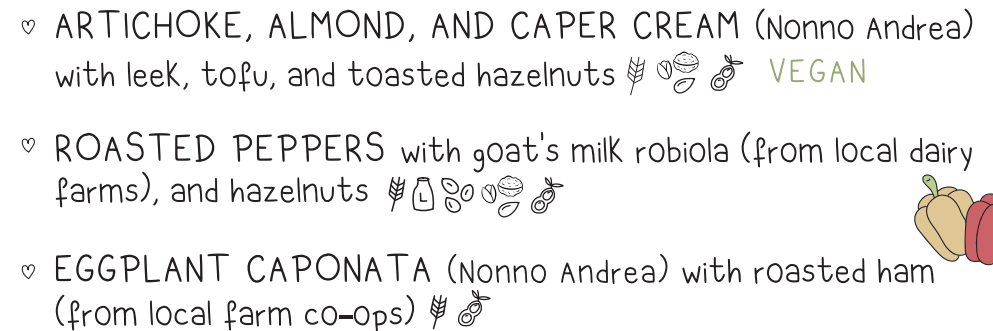 ARTICHOKE, ALMOND, AND CAPER CREAM (Nonno Andrea)
with leek, tofu, and toasted hazelnuts VEGAN
ROASTED PEPPERS with goat's milk robiola (from local dairy
farms), and hazelnuts
L
EGGPLANT CAPONATA (Nonno Andrea) with roasted ham
(from local farm co-ops)